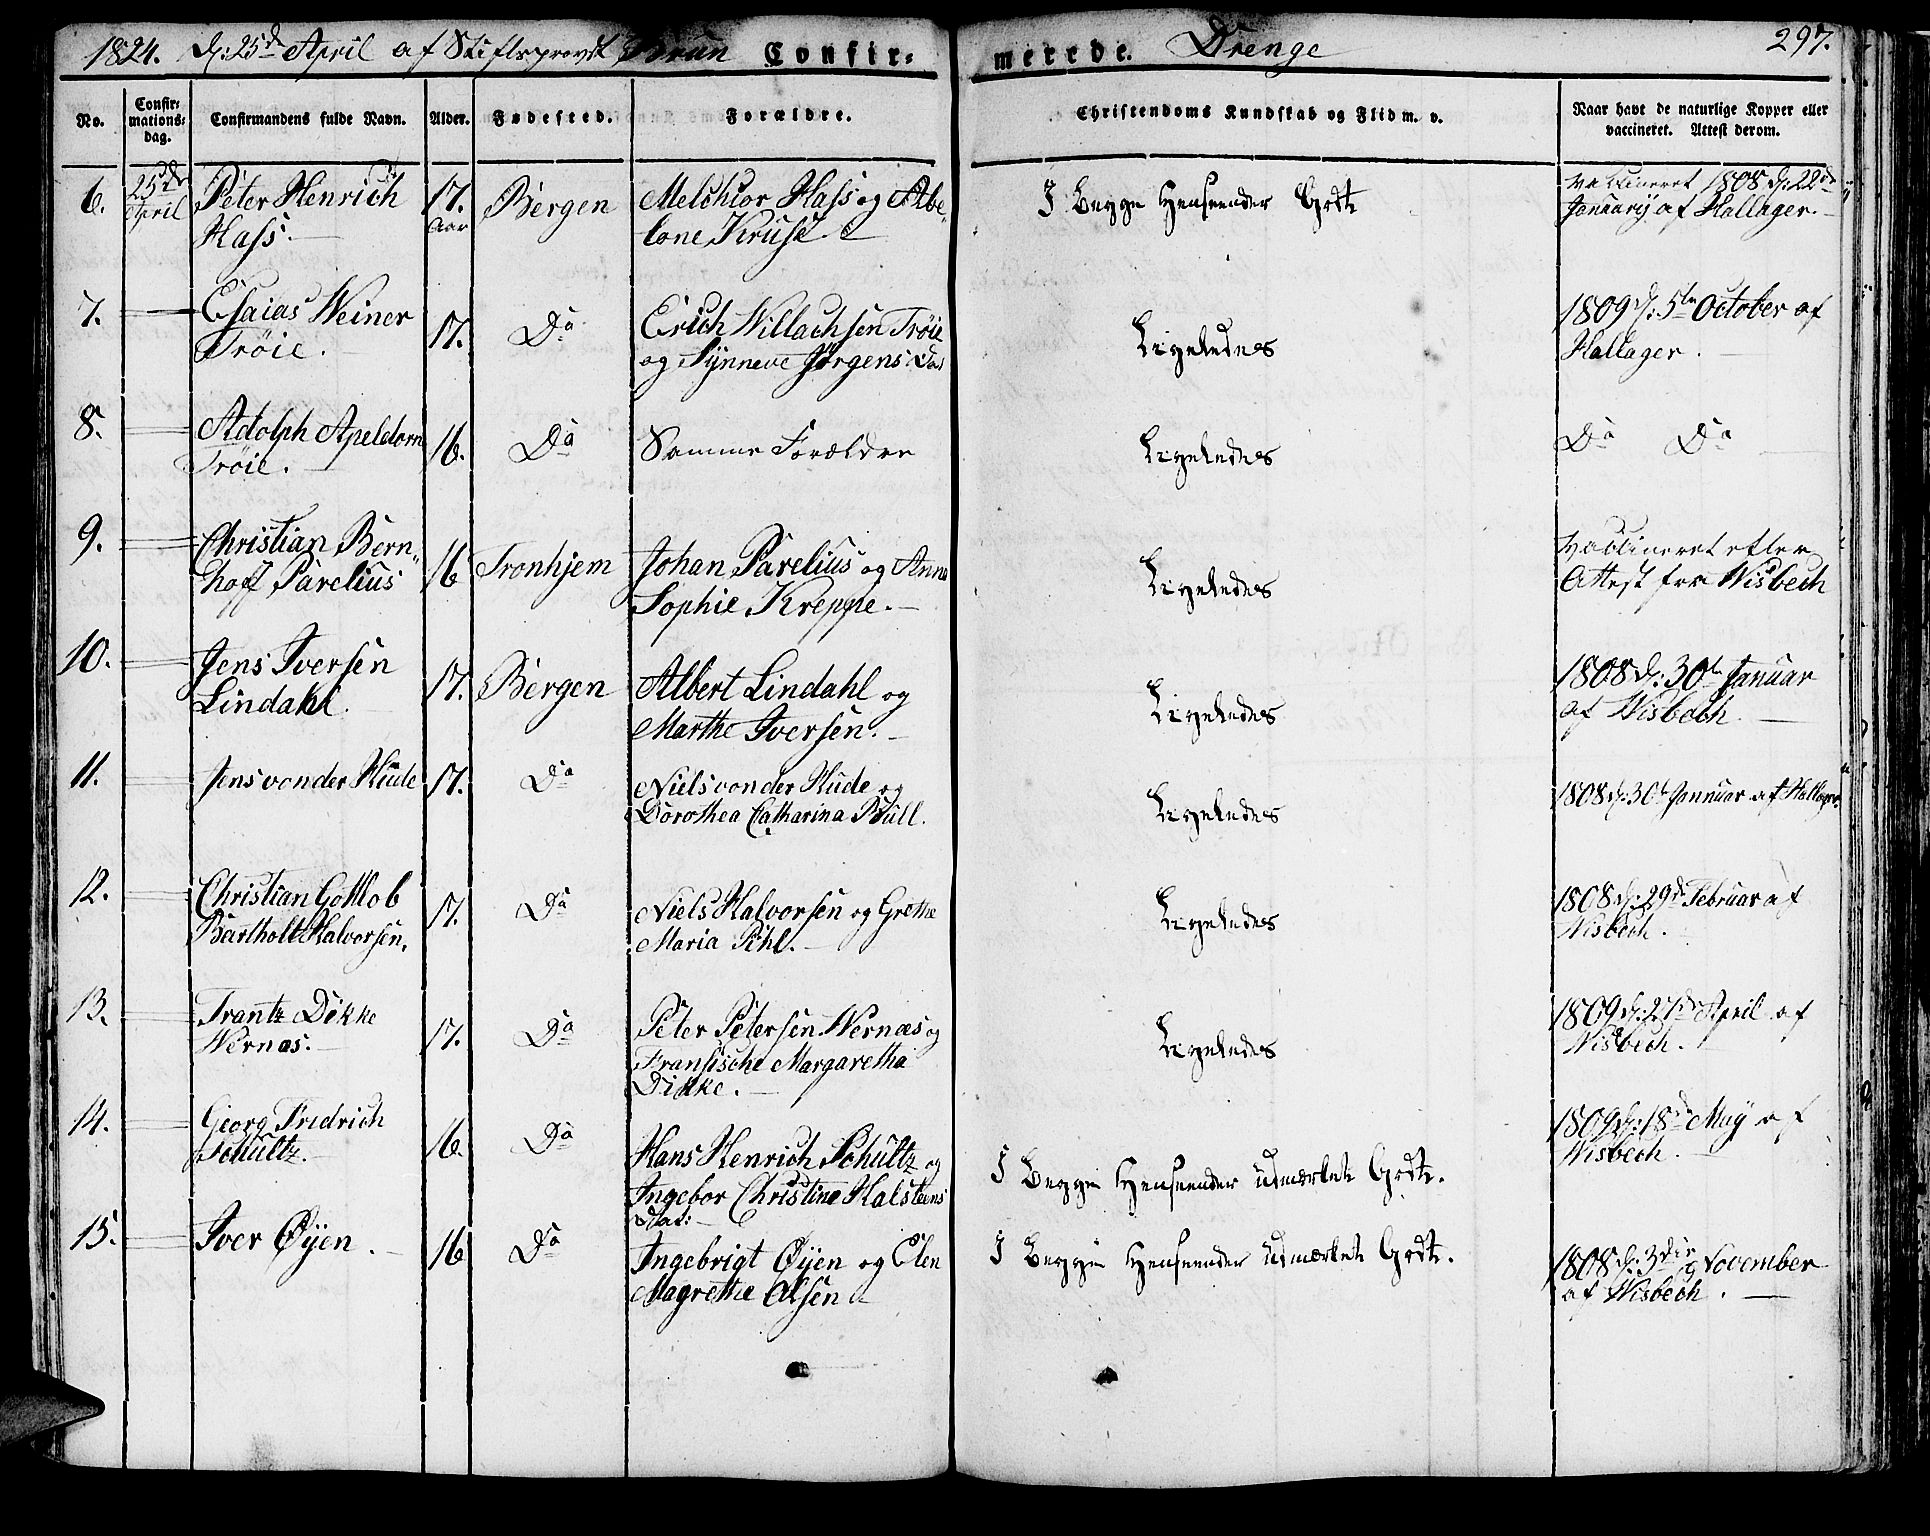 1824. d: 25de April af Stiftsprovst Brun Confir-
merede. Drenge 297.
No. Confir-
mations-
dag. Confirmandens fulde Navn. Alder. Fødested. Forældre. Christendoms Kundskab og Flid m. v. Naar havt de naturlige Kopper eller
vaccineret. Attest derom.
6. 25de
April Peter Henrich
Hass. 17.
Aar Bergen Melchior Hass og Abe-
lone Kruse I Begge Henseender Godt Vaccineret 1808 d: 22de
Januarij af Hallager.
7. Esaias Weiner
Trøie. 17. Do Erich Willachsen Trøie
og Synneve Jørgens Dat Ligeledes 1809 d: 5te October af
Hallager.
8. Adolph Apeldorn
Trøie. 16. Do Samme Forældre Ligeledes Do Do
9. Christian Bern-
hoff Parelius 16 Tronhjem Johan Parelius og Anna
Sophie Kreppe. Ligeledes Vaccineret efter
Attest fra Wisbech
10. Jens Iversen
Lindahl. 17. Bergen Albert Lindahl og
Marthe Iversen. Ligeledes 1808 d: 30te Januar
af Wisbech.
11. Jens vonder Hude 17. Do Niels vonder Hude og
Dorothea Catharina Bull. Ligeledes 1808 d: 30te Januar af Hallager.
12. Christian Gottlob
Bartholt Halvorsen. 17. Do Niels Halvorsen og Grethe
Maria Pihl. Ligeledes 1808 d: 29de Februar af
Wisbech.
13. Frantz Dikke
Wernæs. 17. Do Peter Petersen Wernæs og
Fransische Margaretha
Dikke. Ligeledes 1809 d: 27de April af
Wisbech.
14. Georg Fredrich
Schultz. 16. Do Hans Henrich Schultz og
Ingebor Christina Halsteens
Dat: I Begge Henseender Udmærket Godt. 1809 d: 18de May af
Wisbech.
15. Iver Øyen. 16 Do Ingebrigt Øyen og Elen
Magrethe Olsen I Begge Henseender Udmærket Godt. 1808 d: 3die November
af Wisbech.